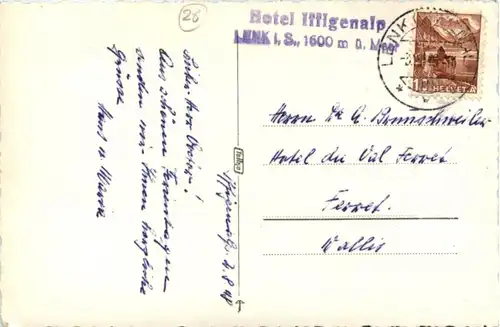 28
Hotel Iffigenalp
LENK i. S., 1600 m ü. Meer
LENK
HELVETIA
Iffigenalp. 2. 8. 48
Lieber Herr Doktor!
Aus schönen Ferientagen
senden wir Ihnen herzliche
Grüsse
Herrn Dr. G. Brunschweiler
Hotel du Val Ferret
Ferret.
Wallis